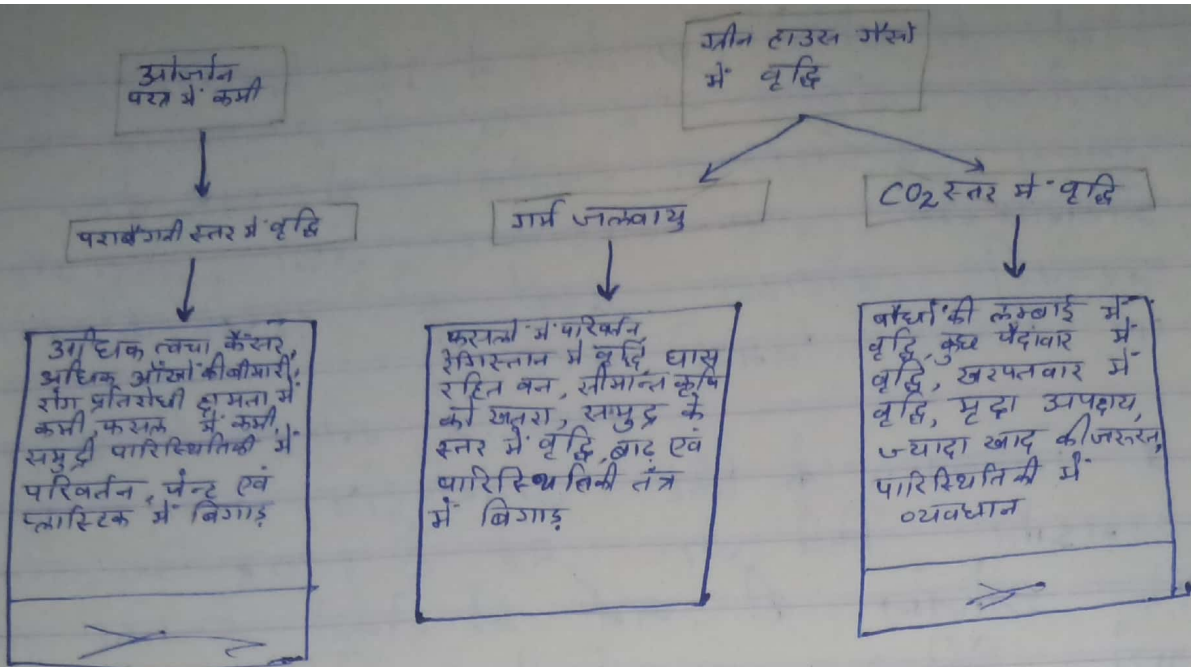 ओजोन
परत में कमी
ग्रीन हाउस गैसों
में वृद्धि
पराबैंगनी स्तर में वृद्धि
गर्म जलवायु
CO2 स्तर में वृद्धि
अधिक त्वचा कैंसर,
अधिक आँखों की बीमारी,
रोग प्रतिरोधी क्षमता में
कमी, फसल में कमी,
समुद्री पारिस्थितिकी में
परिवर्तन, पेन्ट एवं
प्लास्टिक में बिगाड़
फसलों में परिवर्तन,
रेगिस्तान में वृद्धि, घास
रहित वन, सीमान्त कृषि
को खतरा, सामुद्र के
स्तर में वृद्धि, बाढ़ एवं
पारिस्थितिकी तंत्र
में बिगाड़
पौधों की लम्बाई में
वृद्धि, कुछ पैदावार में
वृद्धि, खरपतवार में
वृद्धि, मृदा अपक्षय,
ज्यादा खाद की जरुरत,
पारिस्थितिकी में
व्यवधान